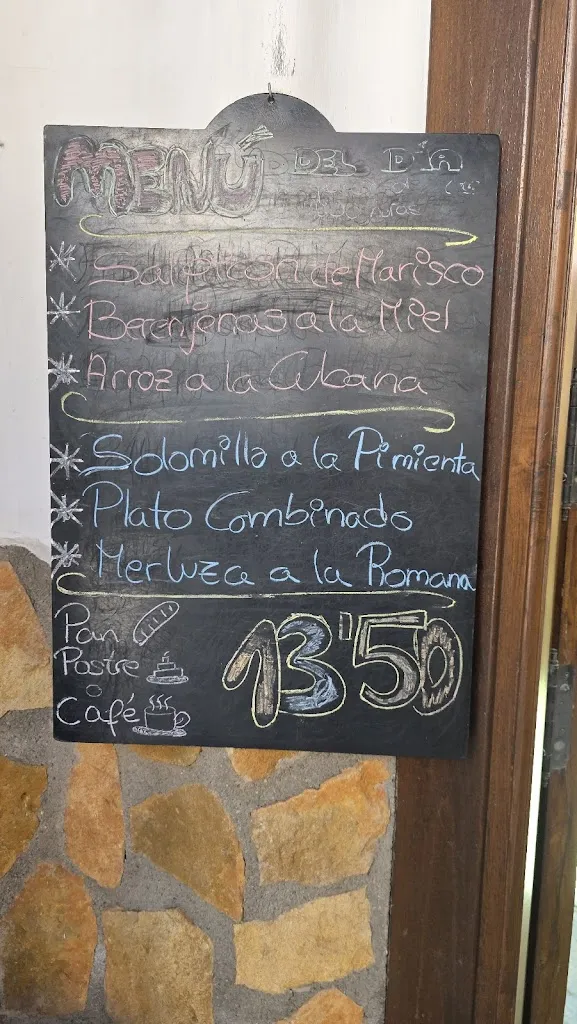 MENÚ DEL DÍA
* Salpicón de Marisco
* Berenjenas a la Miel
* Arroz a la Cubana
* Solomillo a la Pimienta
* Plato Combinado
* Merluza a la Romana
Pan
Postre
o
Café
13'50